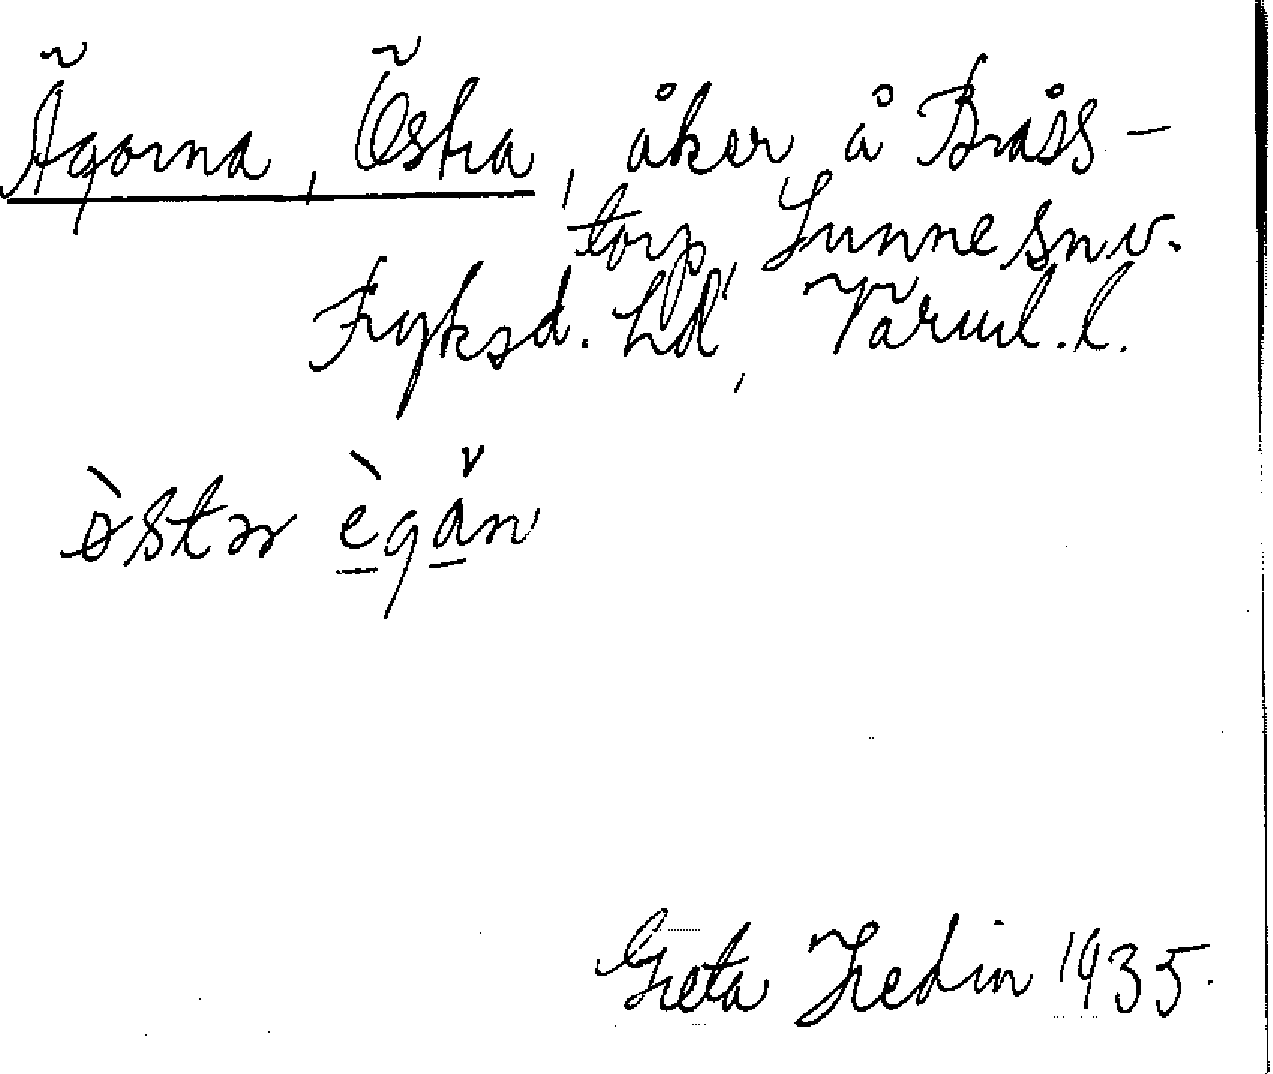 Ägorna, Östra, åker å Bråss-
torp, Sunne sn v.
Fryksd. hd, Värml. l.
òstər ègån
Greta Hedin 1935.